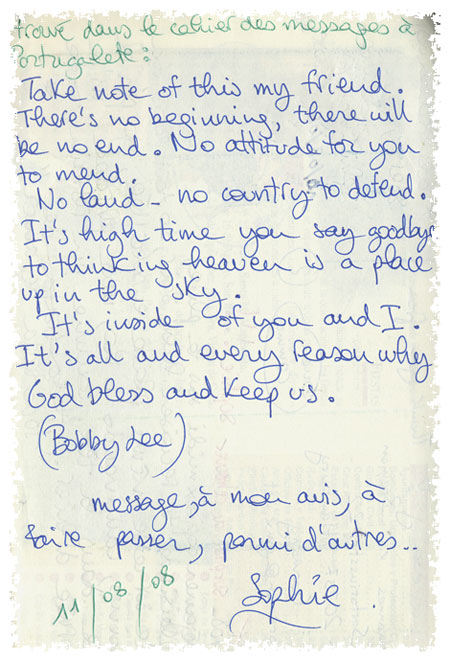 trouvé dans le cahier des messages à
Portugalete :
Take note of this my friend.
There's no beginning, there will
be no end. No attitude for you
to mend.
No land - no country to defend.
It's high time you say goodbye
to thinking heaven is a place
up in the sky.
It's inside of you and I.
It's all and every reason why
God bless and keep us.
(Bobby Lee)
message, à mon avis, à
faire passer, parmi d'autres..
11/08/08 Sophie.